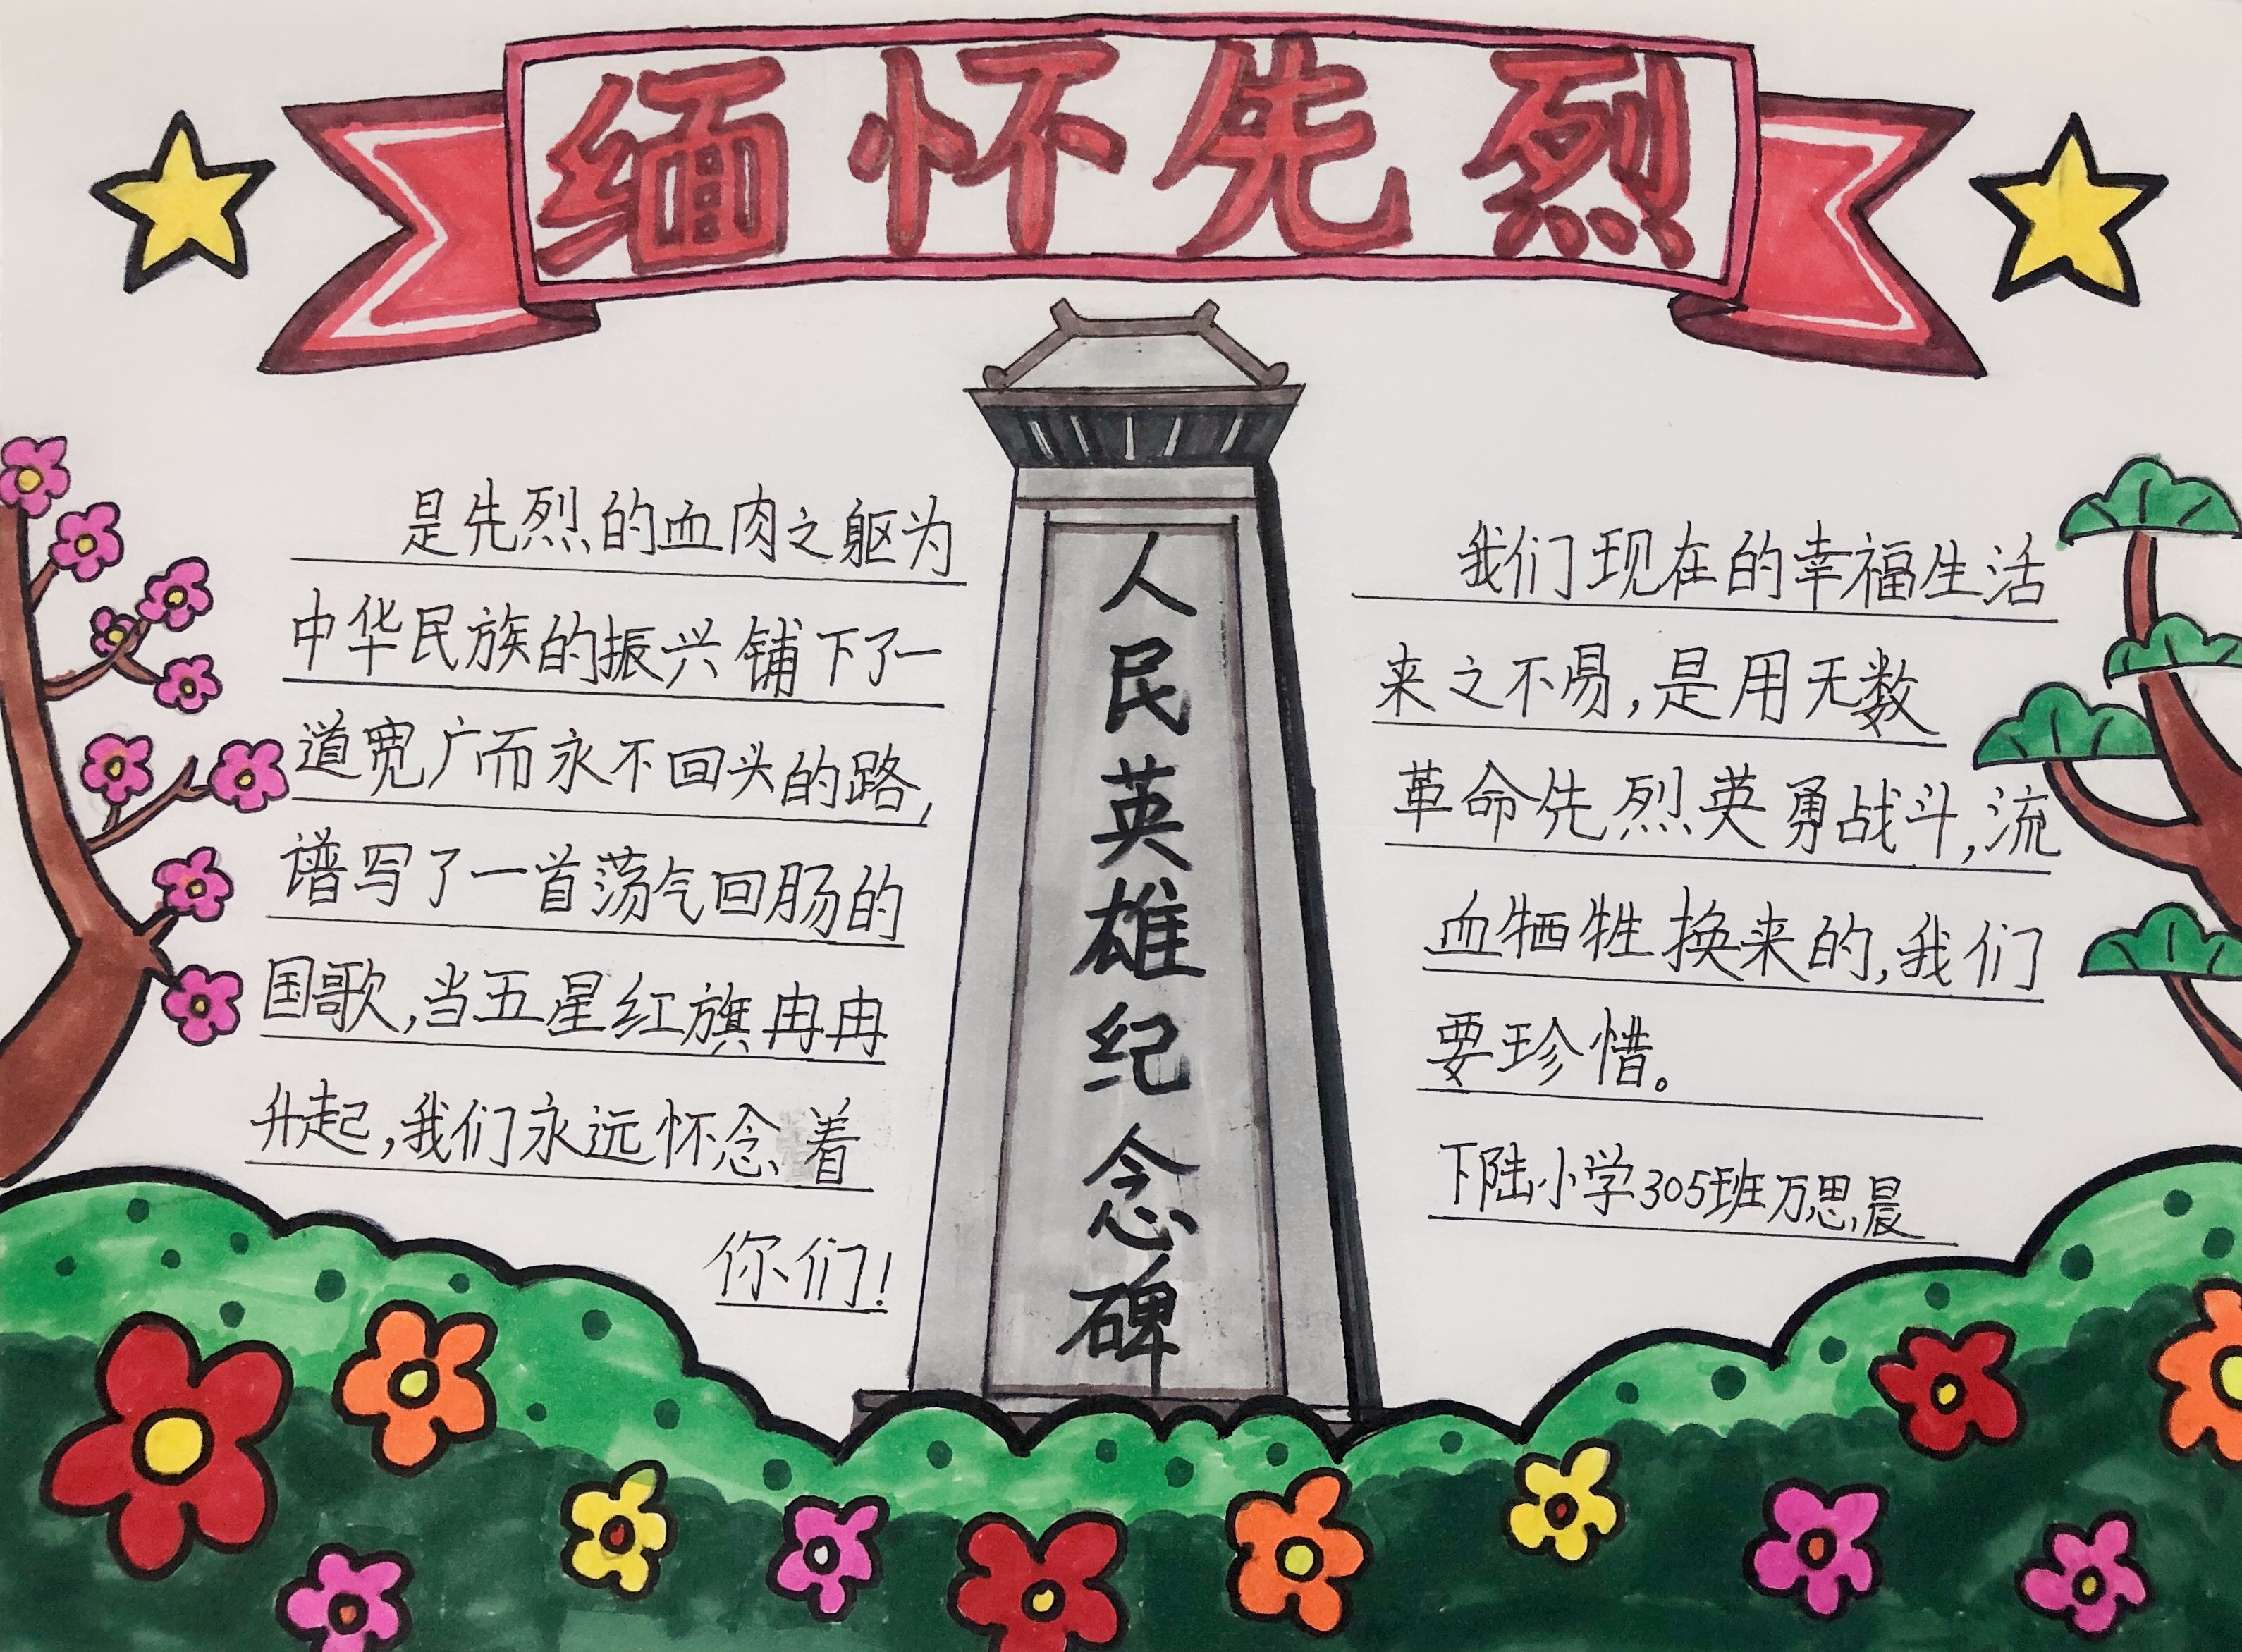 缅怀先烈
是先烈的血肉之躯为
中华民族的振兴铺下了一
道宽广而永不回头的路,
谱写了一首荡气回肠的
国歌,当五星红旗冉冉
升起,我们永远怀念着
你们!
人民英雄纪念碑
我们现在的幸福生活
来之不易,是用无数
革命先烈英勇战斗,流
血牺牲换来的,我们
要珍惜。
下陆小学305班万思晨